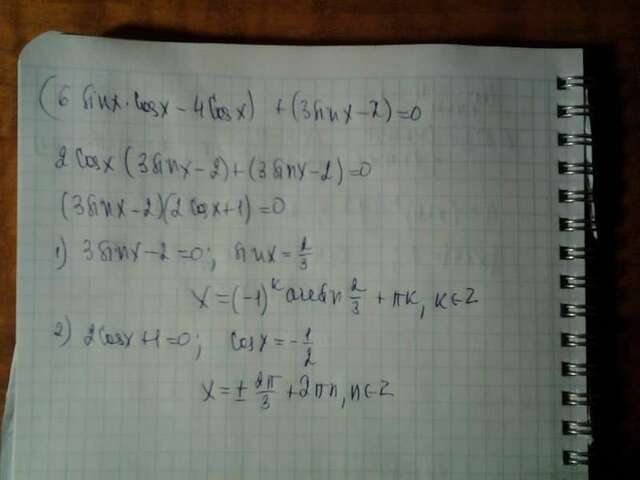 (6 sinx·cosx − 4cosx) + (3sinx − 2) = 0
2cosx (3sinx − 2) + (3sinx − 2) = 0
(3sinx − 2)(2cosx + 1) = 0
1) 3sinx − 2 = 0; sinx = 2/3
x = (−1)^k arcsin 2/3 + πk, k∈Z
2) 2cosx + 1 = 0; cosx = −1/2
x = ± 2π/3 + 2πn, n∈Z